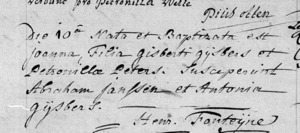 pro Petronilla Wille
Die 10ma Nata et Baptizata est
Joanna Filia Gisberti Gÿsbers et
Petronilla Peters. Susceperunt
Abraham Janssen et Antonia
Gÿsbers.
Henr. Fonteÿne